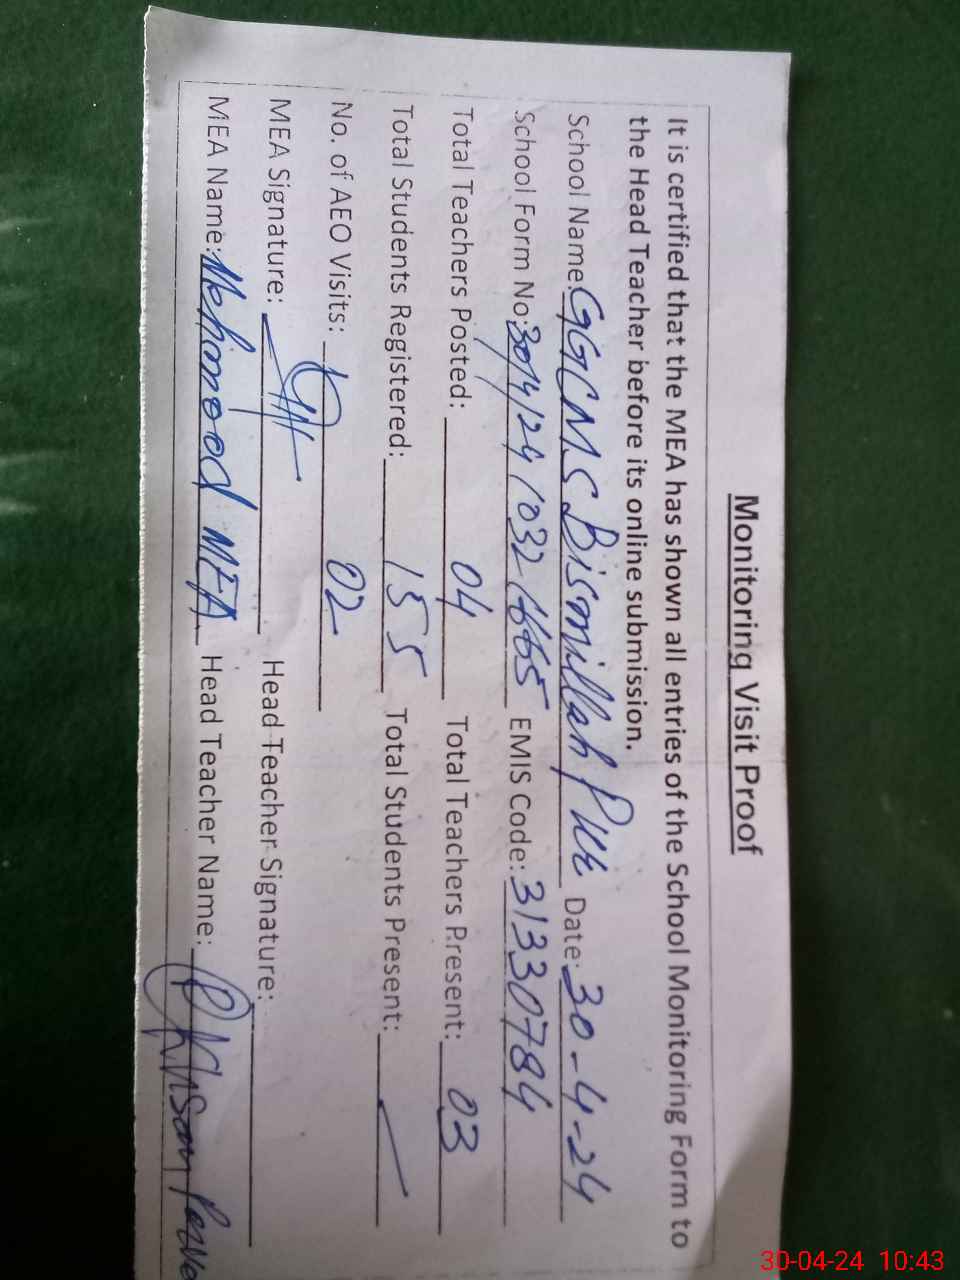 Monitoring Visit Proof
It is certified that the MEA has shown all entries of the School Monitoring Form to
the Head Teacher before its online submission.
School Name: GGCMS Bismillah Pur Date: 30-4-24
School Form No: EMIS Code: 31330784
Total Teachers Posted: 04 Total Teachers Present: 03
Total Students Registered: 155 Total Students Present:
No. of AEO Visits: 02
MEA Signature: Head Teacher Signature:
MEA Name: Mehmood MEA Head Teacher Name:
30-04-24 10:43